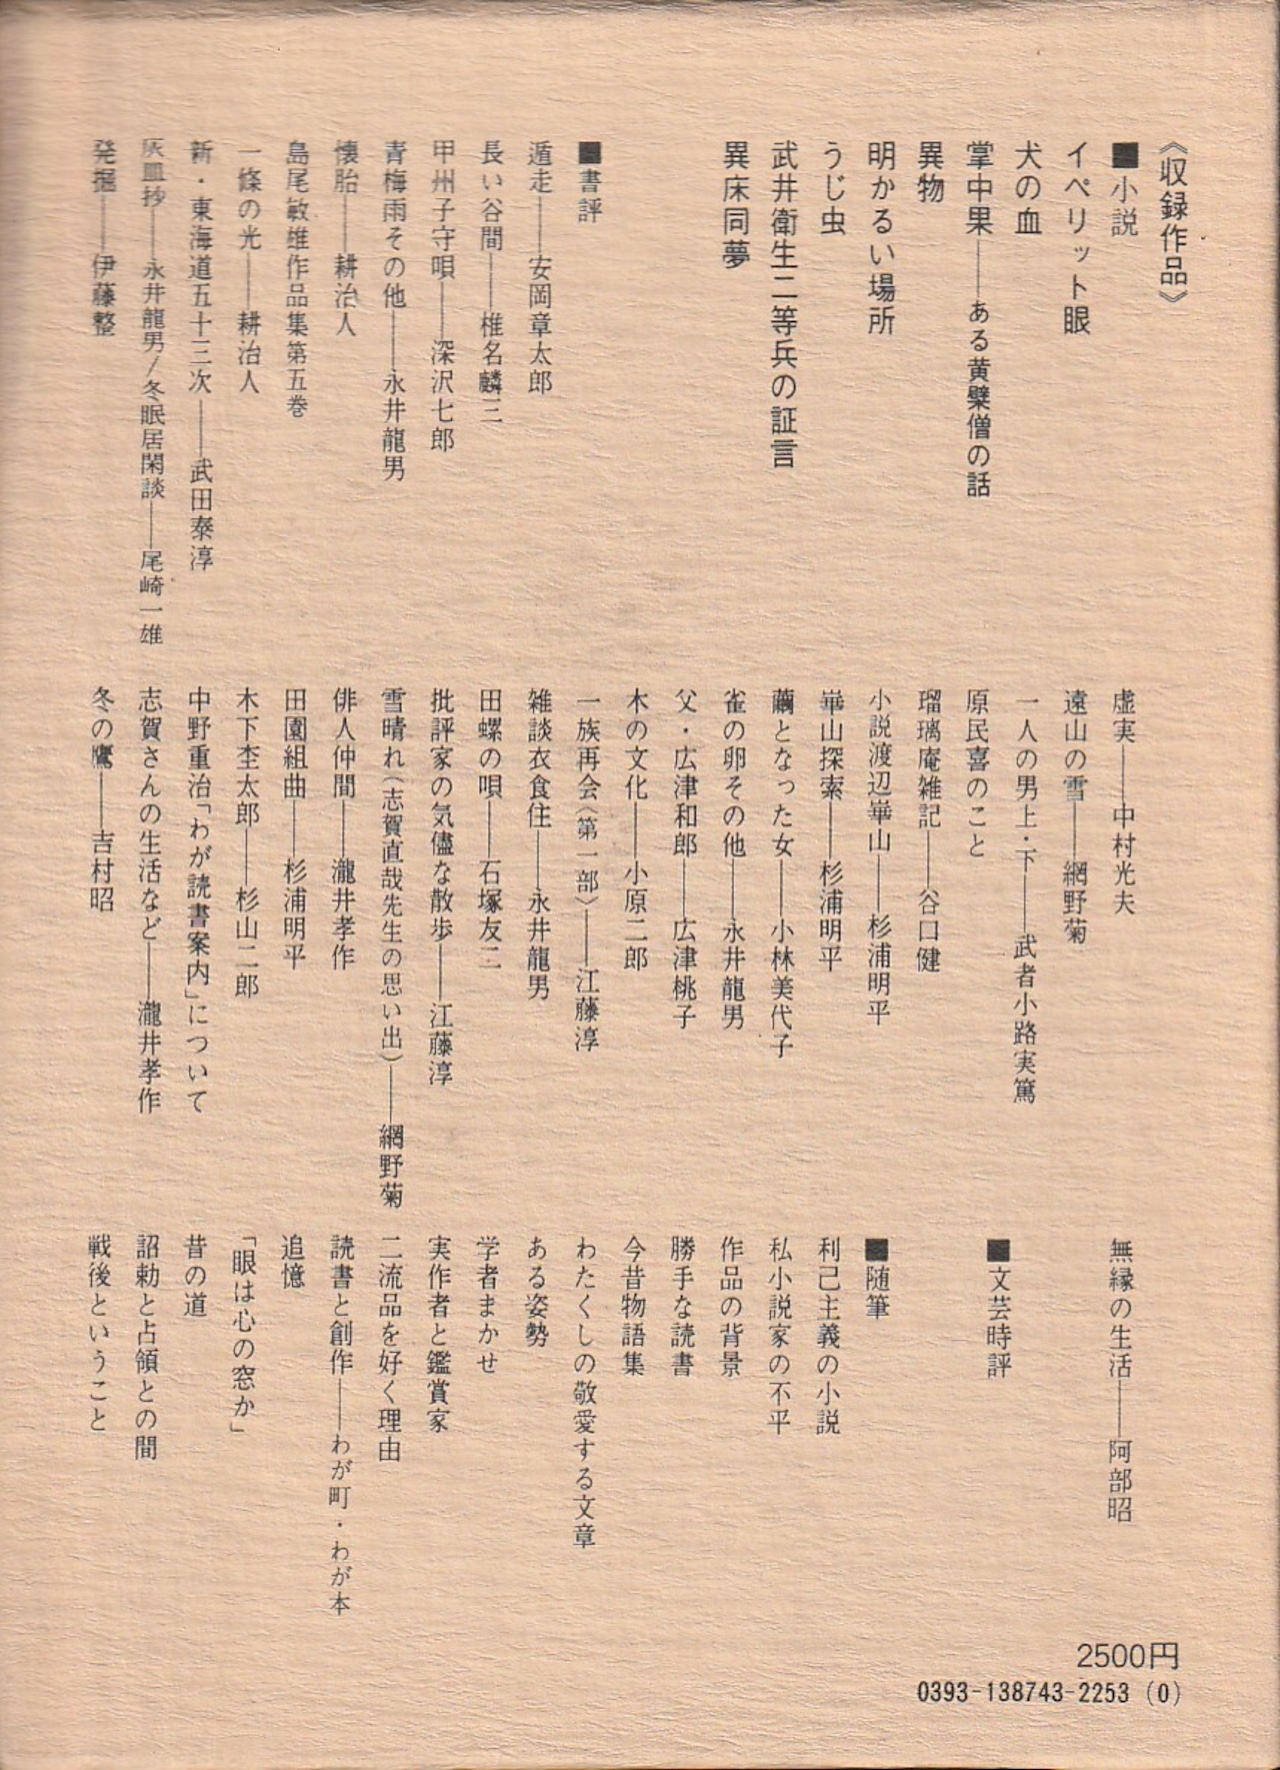 《収録作品》
■小説
イペリット眼
犬の血
掌中果——ある黄檗僧の話
異物
明かるい場所
うじ虫
武井衛生二等兵の証言
異床同夢
■書評
遁走——安岡章太郎
長い谷間——椎名麟三
甲州子守唄——深沢七郎
青梅雨その他——永井龍男
懐胎——耕治人
島尾敏雄作品集第五巻
一條の光——耕治人
新・東海道五十三次——武田泰淳
灰皿抄——永井龍男/冬眠居閑談——尾崎一雄
発掘——伊藤整
虚実——中村光夫
遠山の雪——網野菊
一人の男上・下——武者小路実篤
原民喜のこと
瑠璃庵雑記——谷口健
小説渡辺崋山——杉浦明平
崋山探索——杉浦明平
繭となった女——小林美代子
雀の卵その他——永井龍男
父・広津和郎——広津桃子
木の文化——小原二郎
一族再会(第一部)——江藤淳
雑談衣食住——永井龍男
田螺の唄——石塚友二
批評家の気儘な散歩——江藤淳
雪晴れ(志賀直哉先生の思い出)——網野菊
俳人仲間——瀧井孝作
田園組曲——杉浦明平
木下杢太郎——杉山二郎
中野重治「わが読書案内」について
志賀さんの生活など——瀧井孝作
冬の鷹——吉村昭
無縁の生活——阿部昭
■文芸時評
■随筆
利己主義の小説
私小説家の不平
作品の背景
勝手な読書
今昔物語集
わたくしの敬愛する文章
ある姿勢
学者まかせ
実作者と鑑賞家
二流品を好く理由
読書と創作——わが町・わが本
追憶
「眼は心の窓か」
昔の道
詔勅と占領との間
戦後ということ
2500円
0393-138743-2253 (0)